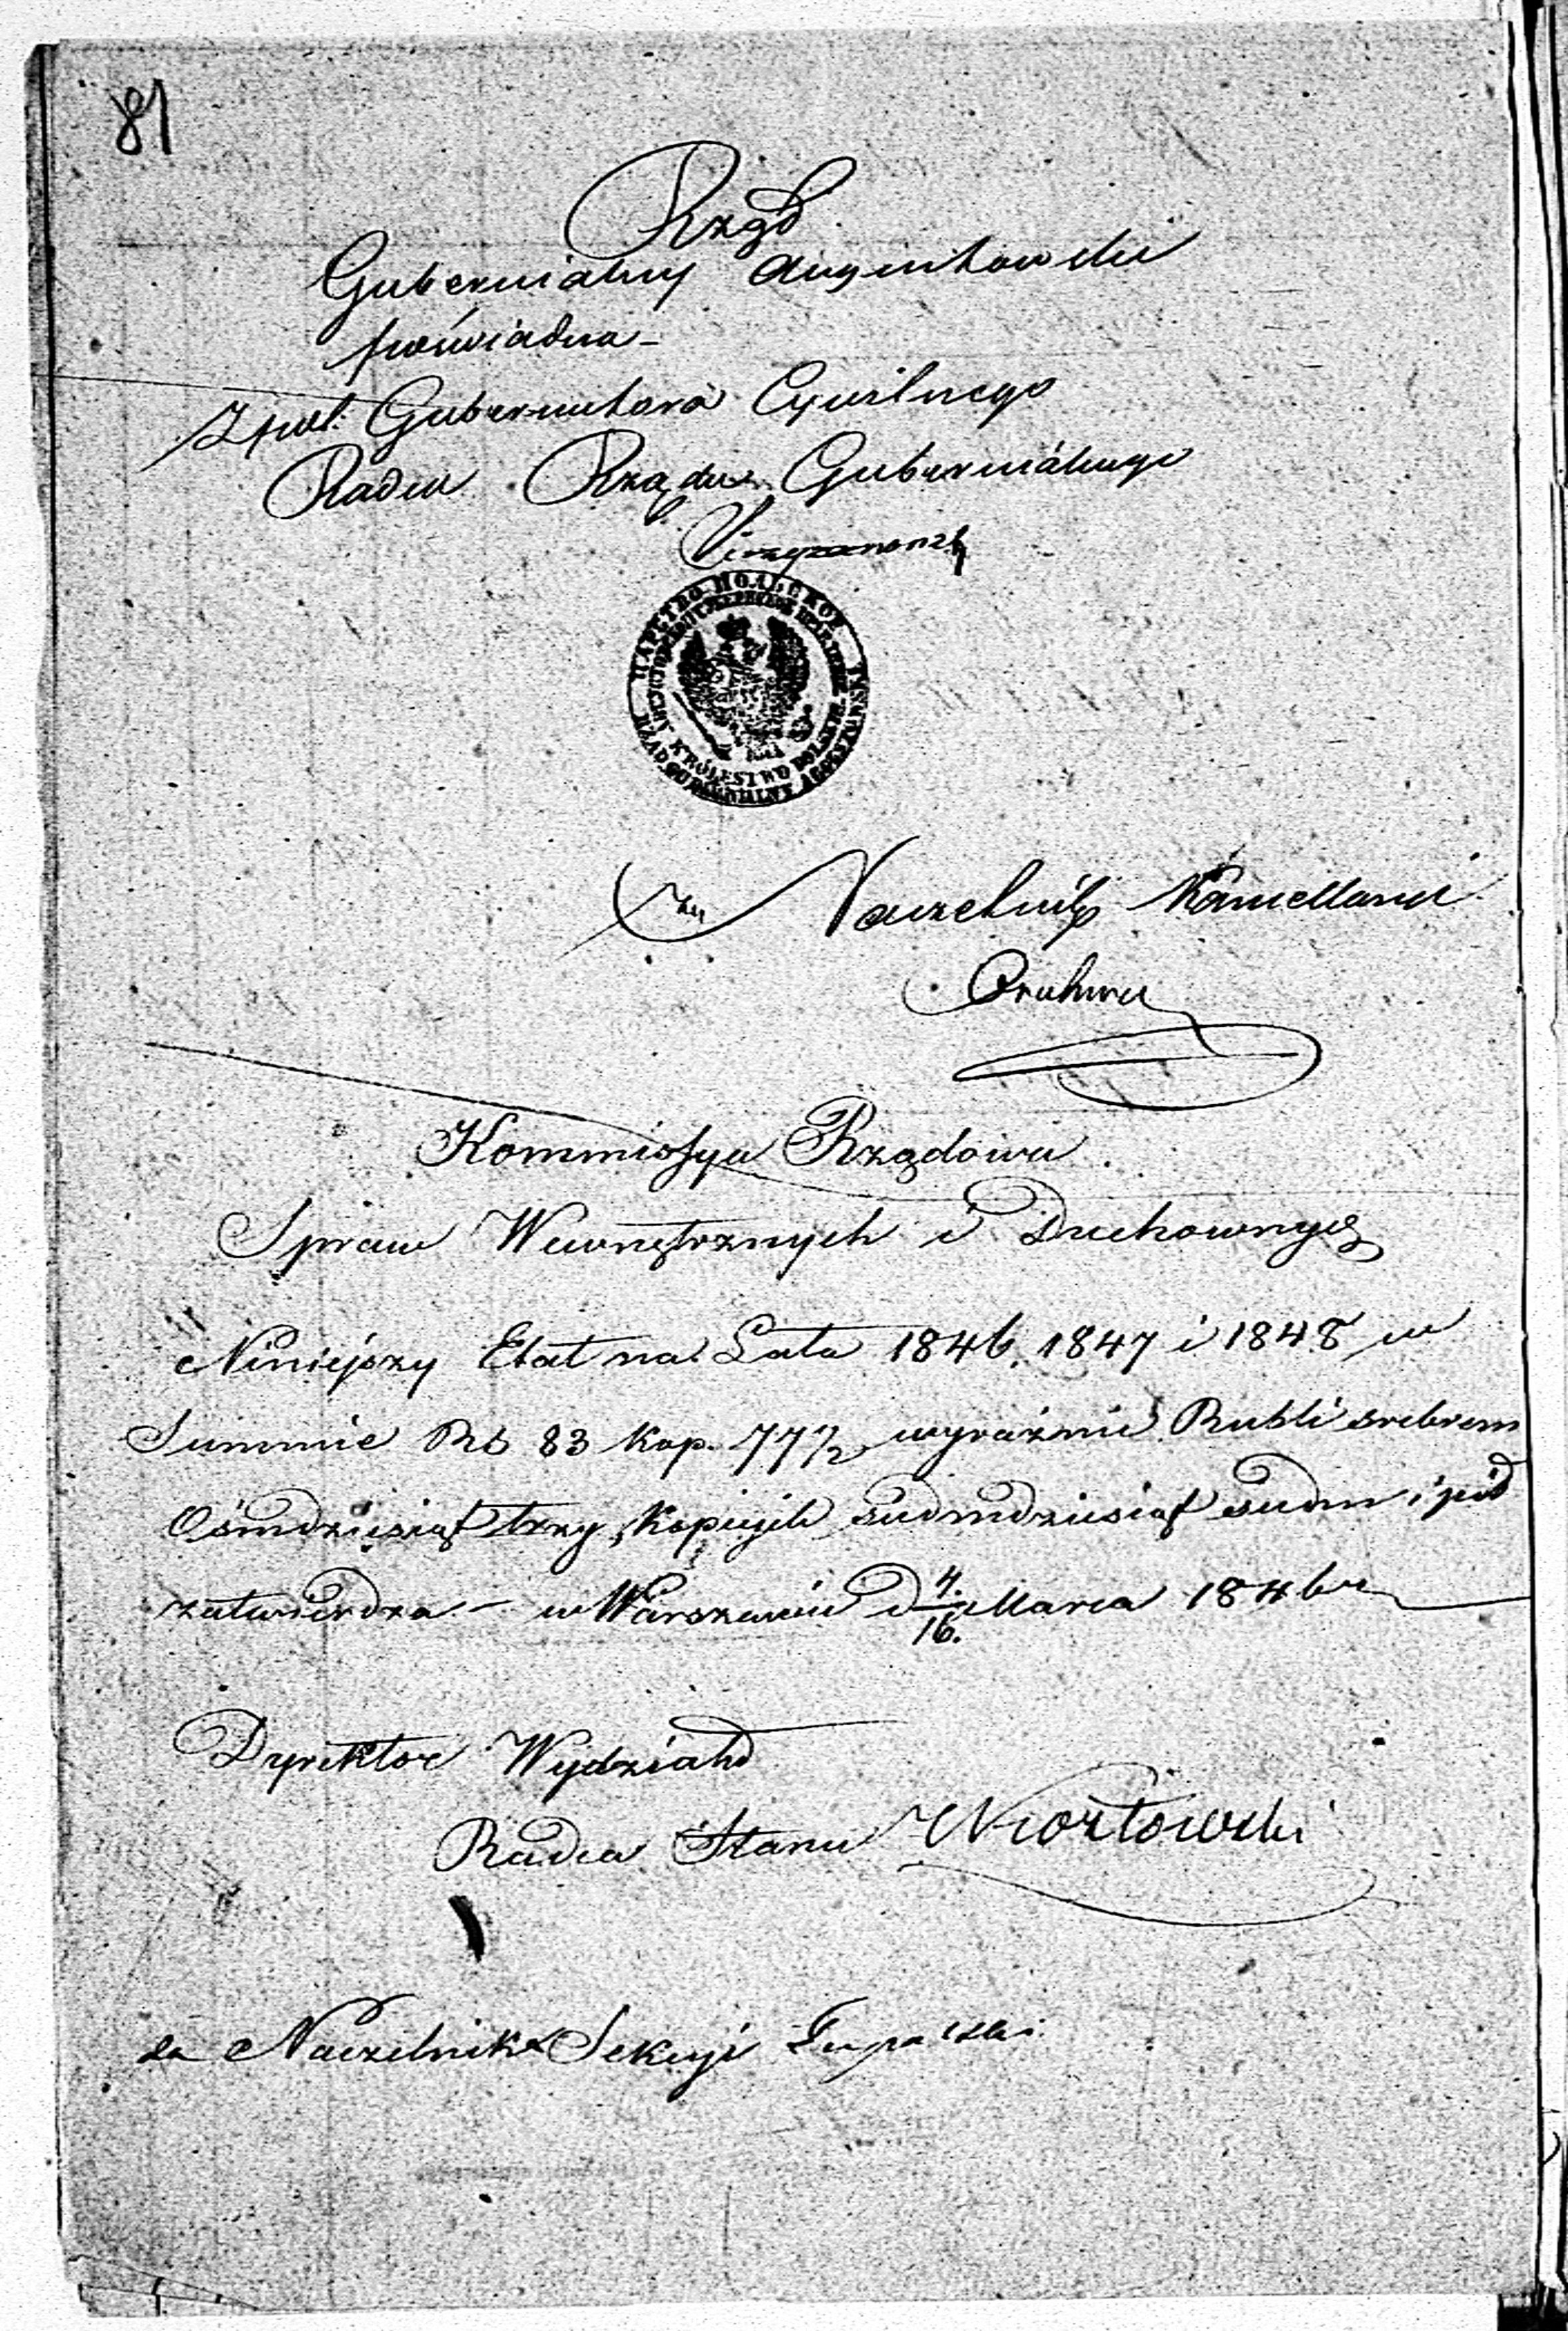 81
Rząd
Gubernialny Augustowski
poświadcza –
Z pol. Gubernatora Cywilnego
Radca Rządu Gubernialnego
ЦАРСТВО ПОЛЬСКОЕ
KRÓLESTWO POLSKIE
RZĄD GUBERNIALNY AUGUSTOWSKI
za Naczelnik Kancellarii
Kommissya Rządowa
Spraw Wewnętrznych i Duchownych
Niniejszy Etat na Lata 1846. 1847 i 1848 w
Summie Rs 83 kop. 77½ wyraźnie Rubli srebrem
Ośmdziesiąt trzy, kopiejek siedmdziesiąt siedm i pół
zatwierdza – w Warszawie d 4/16. Marca 1846 r
Dyrektor Wydziału
Radca Stanu
za Naczelnika Sekcyi